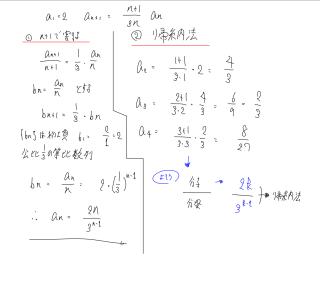 a₁=2 aₙ₊₁ = n+1/3n aₙ
① n+1で割る
aₙ₊₁/n+1 = 1/3 · aₙ/n
bₙ = aₙ/n とする
bₙ₊₁ = 1/3 · bₙ
{bₙ}は初項 b₁ = 2/1 = 2
公比1/3の等比数列
bₙ = aₙ/n = 2·(1/3)ⁿ⁻¹
∴ aₙ = 2n/3ⁿ⁻¹
② 帰納法
a₂ = 1+1/3·1 · 2 = 4/3
a₃ = 2+1/3·2 · 4/3 = 6/9 = 2/3
a₄ = 3+1/3·3 · 2/3 = 8/27
より
分子/分母 → 2k/3ᵏ⁻¹ 帰納法